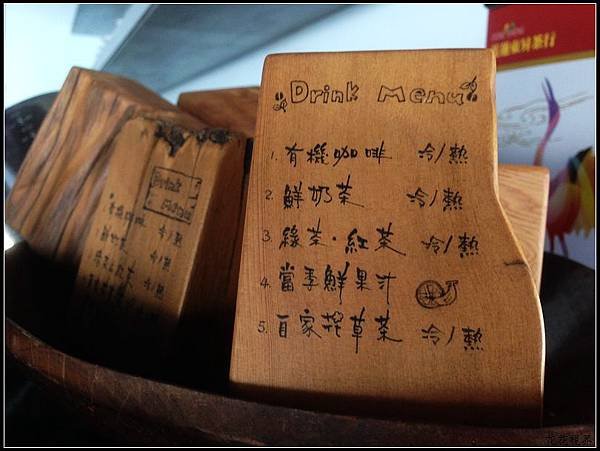 Drink Menu
1. 有機咖啡 冷/熱
2. 鮮奶茶 冷/熱
3. 綠茶·紅茶 冷/熱
4. 當季鮮果汁
5. 百家花草茶 冷/熱
有機咖啡 冷/熱
鮮奶茶 冷/熱
冷/熱
冷/熱